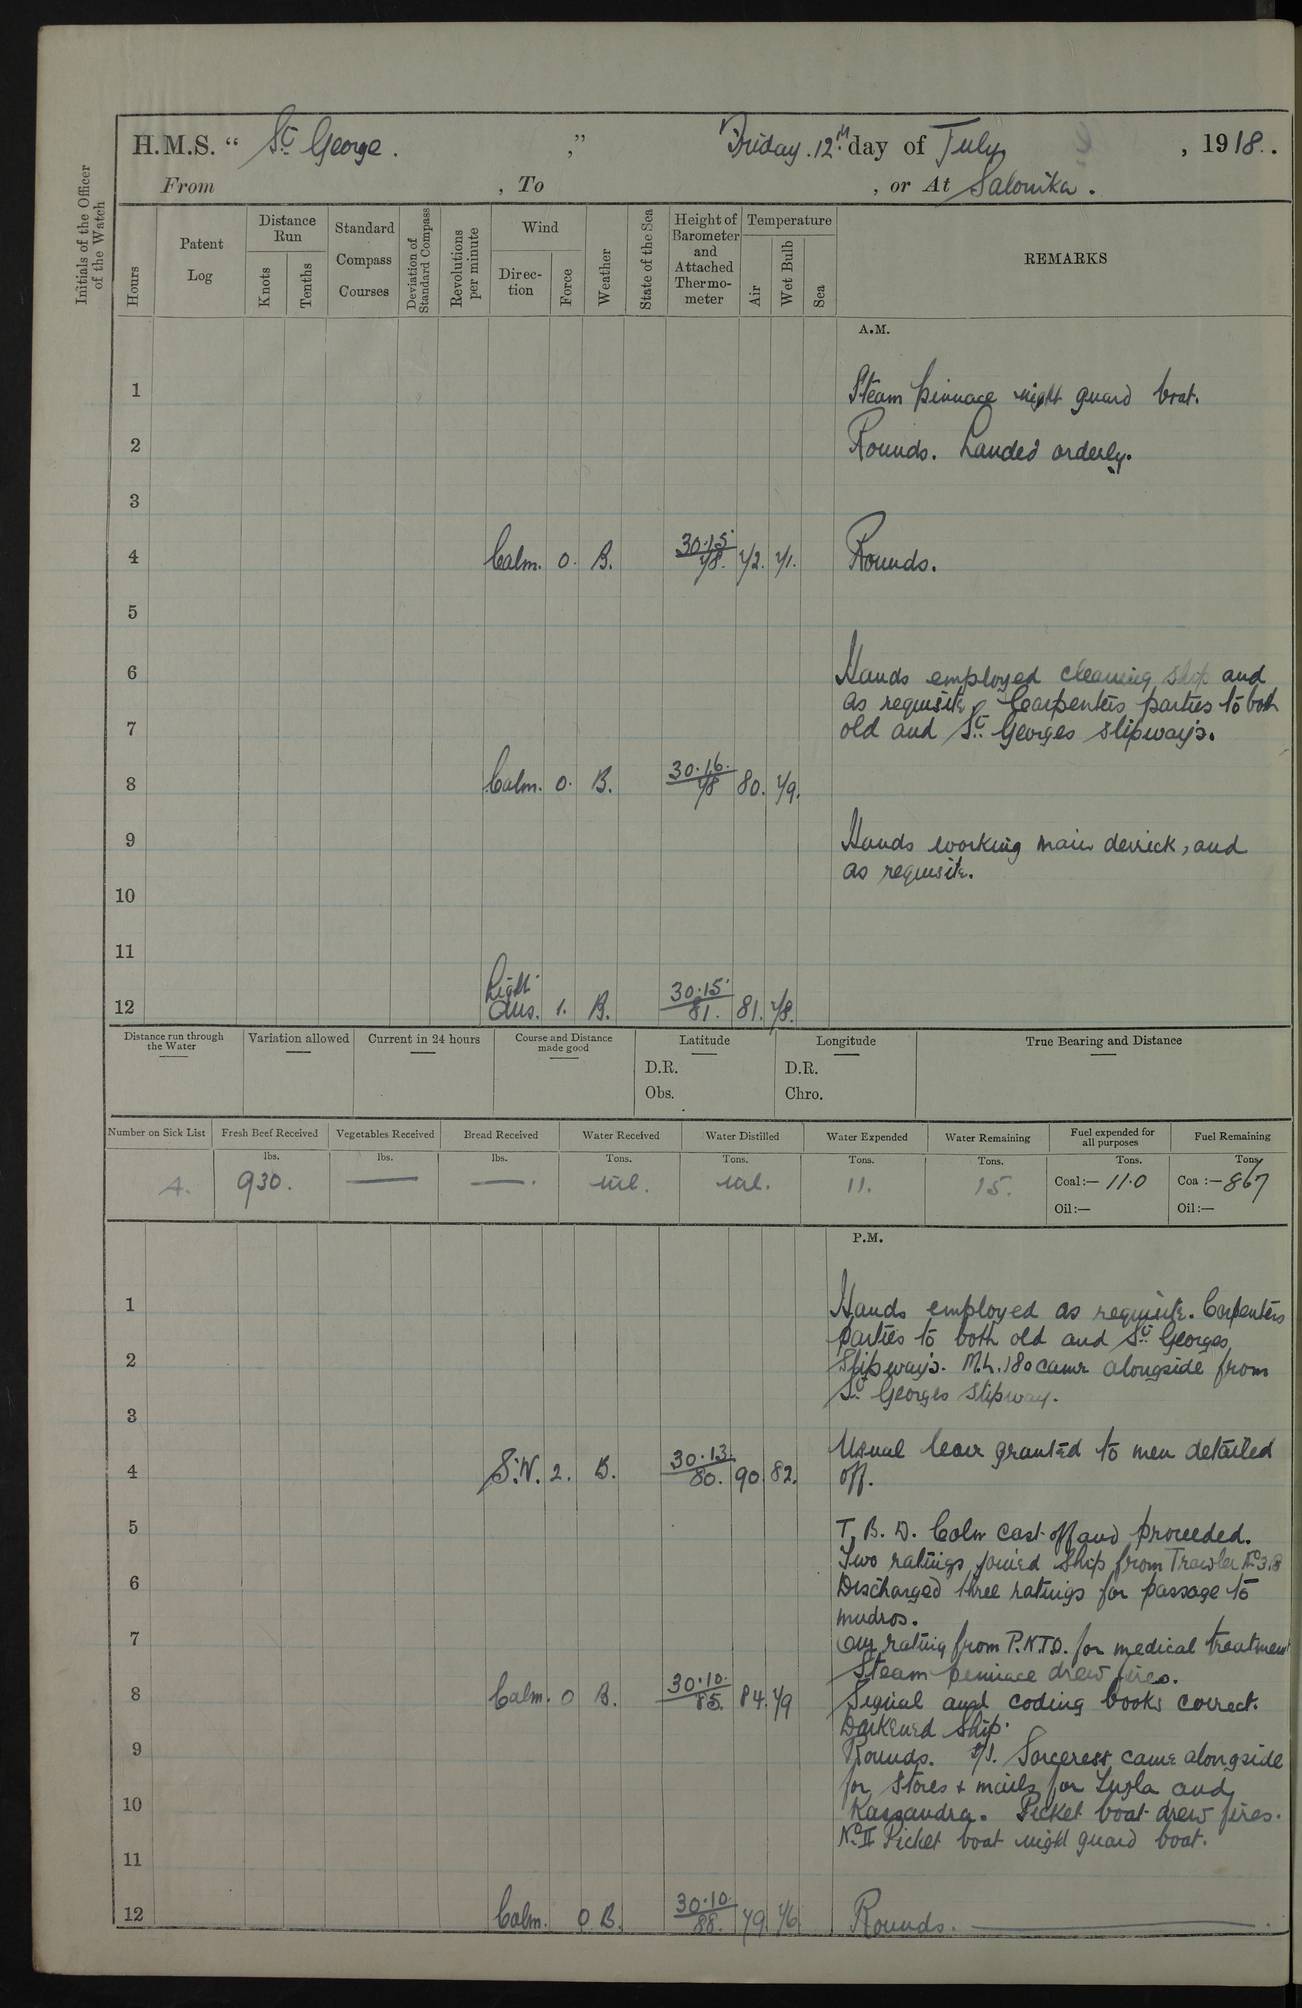 H.M.S. “ St George. ,” Friday. 12th day of July , 1918.
From , To , or At Salonika.
Initials of the Officer of the Watch
Hours
Patent Log
Distance Run
Knots
Tenths
Standard Compass Courses
Deviation of Standard Compass
Revolutions per minute
Wind
Direction
Force
Weather
State of the Sea
Height of Barometer and Attached Thermometer
Temperature
Air
Wet Bulb
Sea
REMARKS
A.M.
1 Steam pinnace night guard boat.
2 Rounds. Landed orderly.
3
4 Calm. 0. B. 30.15 78. 72. 71. Rounds.
5
6 Hands employed cleaning ship and
as requisite, Carpenters parties to both
7 old and St Georges slipway's.
8 Calm. 0. B. 30.16. 78 80. 79.
9 Hands working main derrick, and
as requisite.
10
11
12 Light Airs. 1. B. 30.15 81. 81. 78.
Distance run through the Water
Variation allowed
Current in 24 hours
Course and Distance made good
Latitude
D.R.
Obs.
Longitude
D.R.
Chro.
True Bearing and Distance
Number on Sick List
Fresh Beef Received
Vegetables Received
Bread Received
Water Received
Water Distilled
Water Expended
Water Remaining
Fuel expended for all purposes
Fuel Remaining
lbs. lbs. lbs. Tons. Tons. Tons. Tons. Tons. Tons.
4. 930. — —. nil. nil. 11. 15. Coal:— 11.0 Coa :— 867
Oil:— Oil:—
P.M.
1 Hands employed as requisite. Carpenters
parties to both old and St Georges
2 Slipway's. M.L. 180 came alongside from
St Georges slipway.
3
Usual leave granted to men detailed
4 S.W. 2. B. 30.13. 80. 90 82. off.
5 T. B. D. Colne cast off and proceeded.
Two ratings joined ship from Trawler No 318
6 Discharged three ratings for passage to
mudros.
7 One rating from P.N.T.O. for medical treatment
Steam pinnace drew fires.
8 Calm. 0 B. 30.10. 85. 84. 79 Signal and coding books correct.
Darkened Ship.
9 Rounds. S/S. Sorceress came alongside
for stores + mails for Suvla and
10 Kassandra. Picket boat drew fires.
No II Picket boat night guard boat.
11
12 Calm. 0 B. 30.10 88. 79. 76 Rounds.